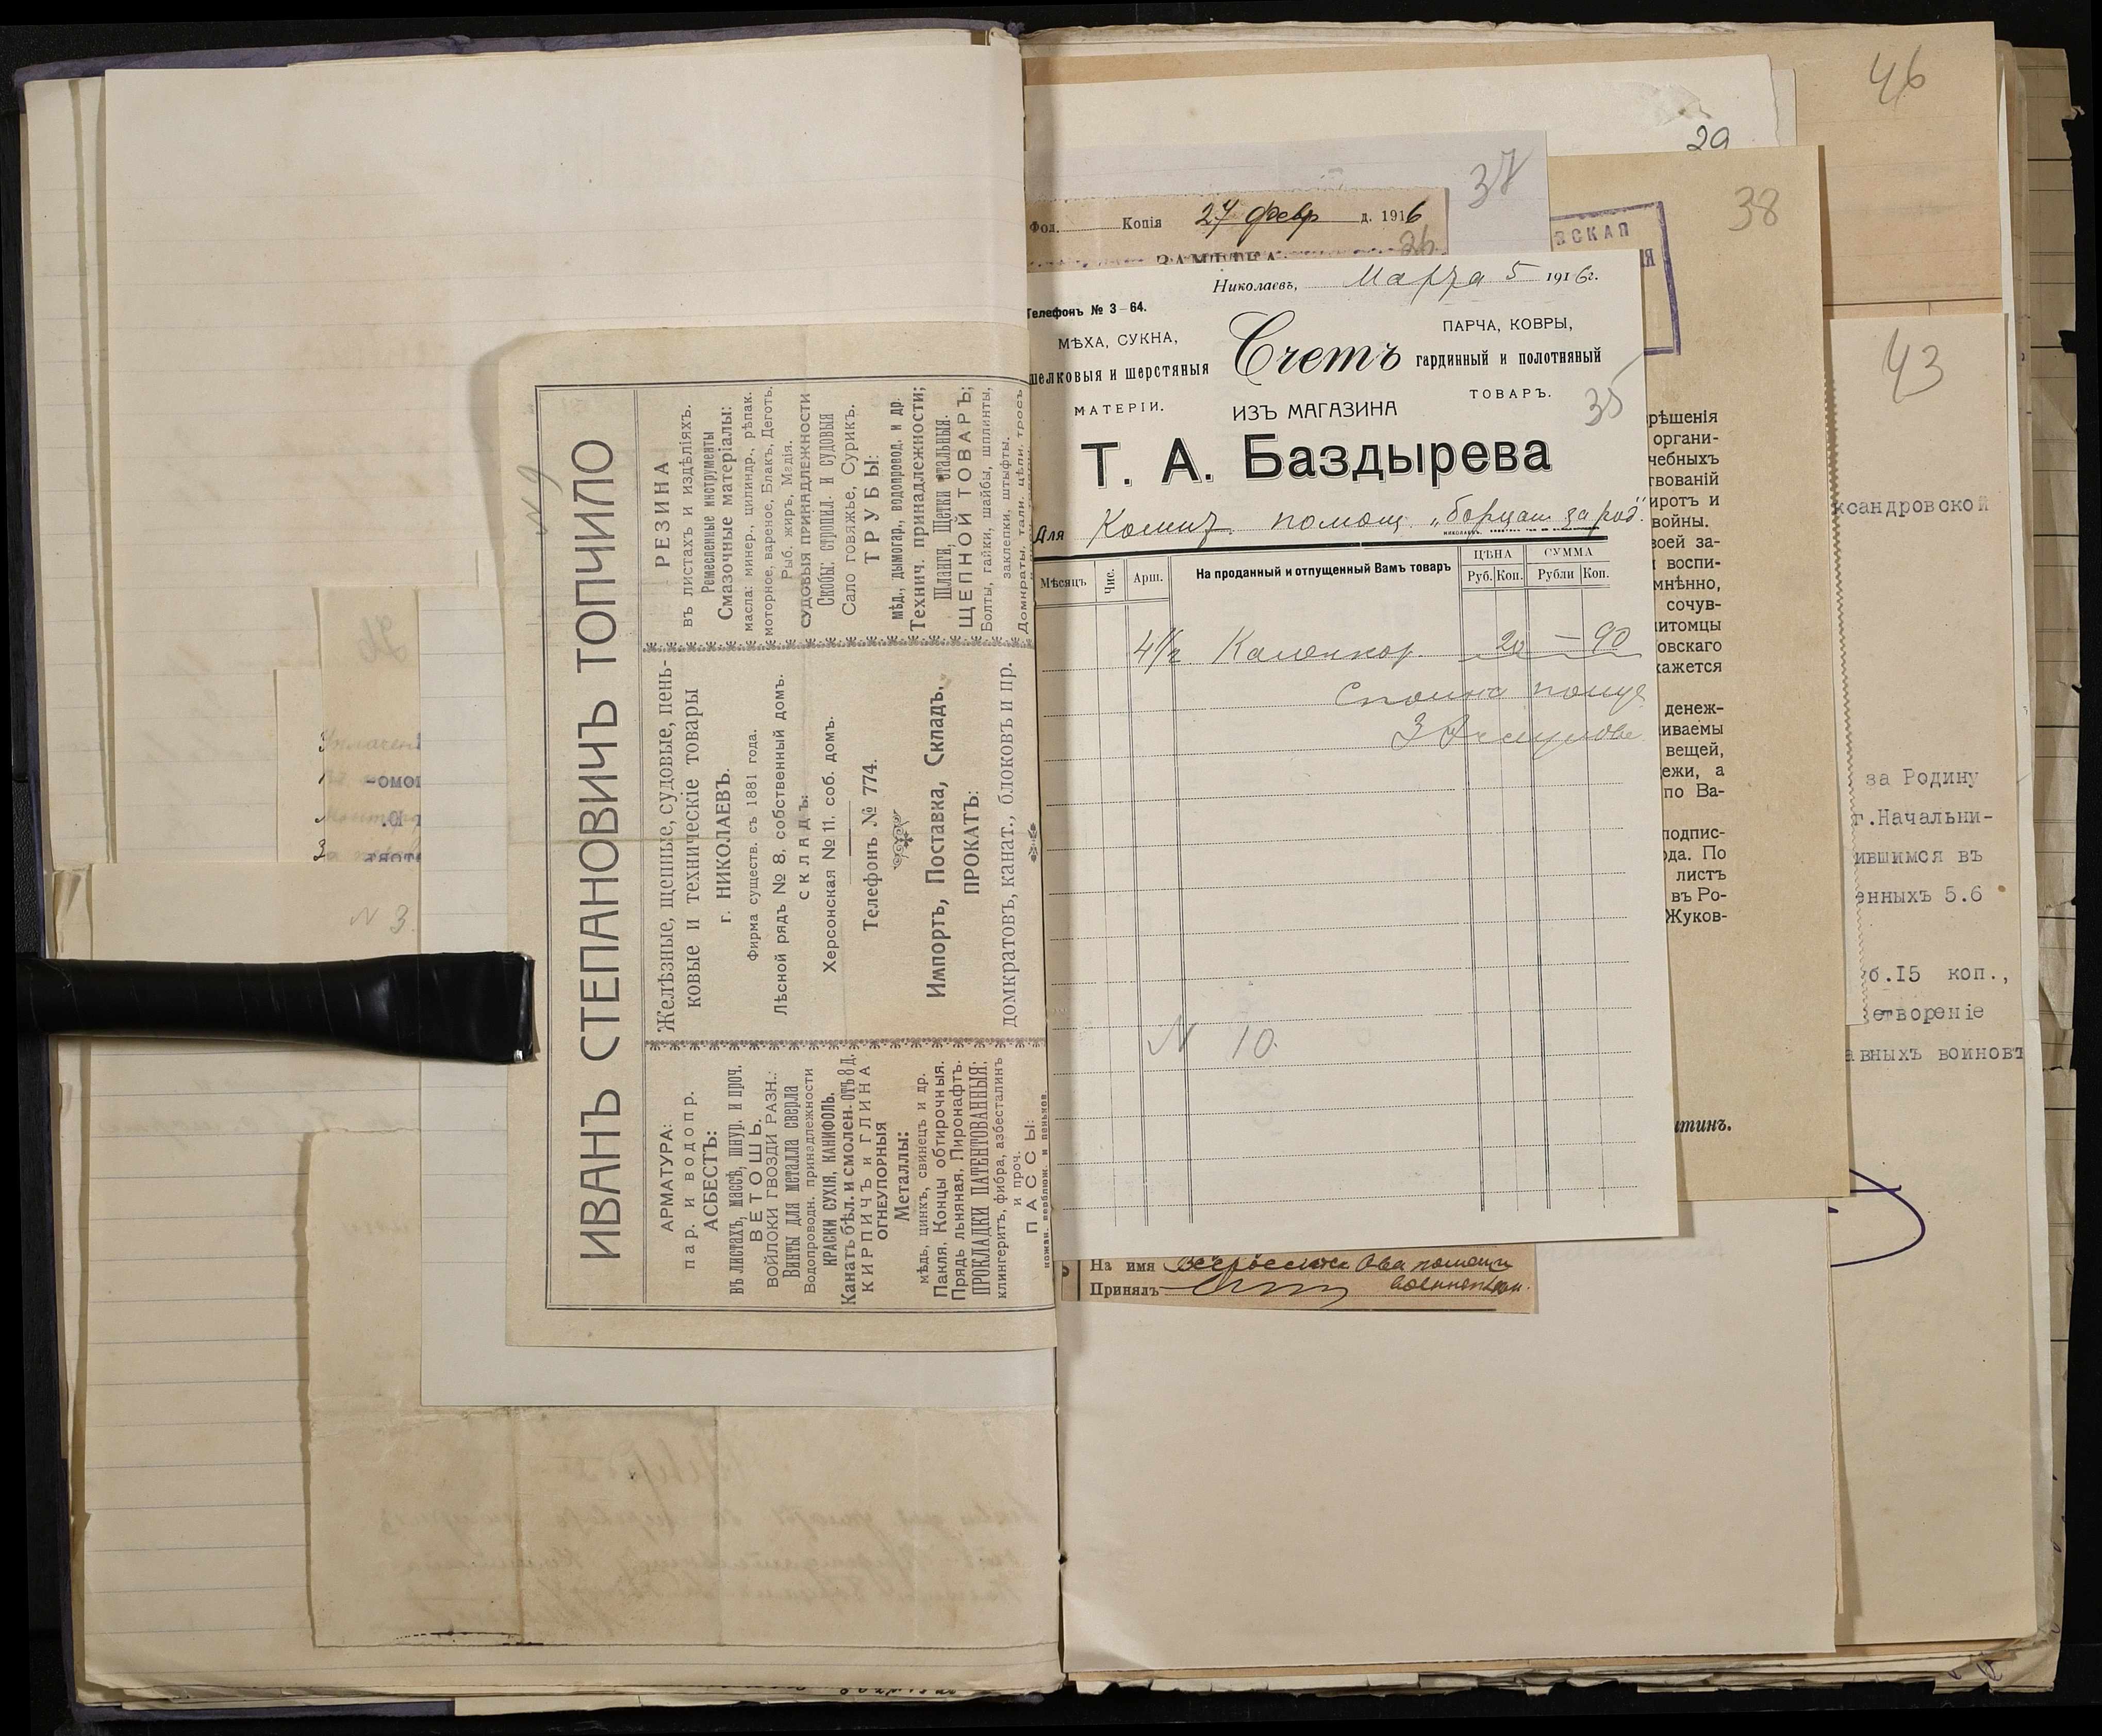 46
29
37
38
Фол. Копія 27 февр д. 1916
26
ЗАМѢТКА
ВСКАЯ
43
Николаевъ, Марта 5 1916г.
Телефонъ № 3-64.
МѢХА, СУКНА,
шелковыя и шерстяныя
МАТЕРІИ.
Счетъ
ИЗЪ МАГАЗИНА
ПАРЧА, КОВРЫ,
гардинный и полотняный
ТОВАРЪ.
35
Т. А. Баздырева
Для Комит. помощ. „борцам за род."
Мѣсяцъ Чис. Арш. На проданный и отпущенный Вамъ товаръ ЦѢНА Руб. Коп. СУММА Рубли Коп.
4 1/2 Каленкор 20 — 90
N 10.
На имя
Принялъ
рѣшенія
органи-
чебныхъ
твованій
иротъ и
войны.
воей за-
воспи-
мнѣнно,
сочув-
итомцы
овскаго
кажется
денеж-
иваемы
вещей,
ежи, а
по Ва-
подпис-
ода. По
листъ
въ Ро-
Жуков-
итинъ.
ксандровской
за Родину
г.Начальни-
ившимся въ
енныхъ 5.6
б.15 коп.,
етвореніе
авныхъ воиновъ
N 9
ИВАНЪ СТЕПАНОВИЧЪ ТОПЧИЛО
АРМАТУРА:
пар. и водопр.
АСБЕСТЪ:
въ листахъ, массѣ, шнур. и проч.
ВЕТОШЬ.
ВОЙЛОКИ ГВОЗДИ РАЗН.:
Винты для металла сверла
Водопроводн. принадлежности
КРАСКИ СУХІЯ, КАНИФОЛЬ.
Канатъ бѣл. и смолен. отъ 8 д.
КИРПИЧЪ и ГЛИНА
ОГНЕУПОРНЫЯ
Металлы:
мѣдь, цинкъ, свинецъ и др.
Пакля, Концы обтирочныя.
Прядь льняная, Пиронафтъ.
ПРОКЛАДКИ ПАТЕНТОВАННЫЯ:
клингеритъ, фибра, азбесталинъ
и проч.
ПАССЫ:
кожан. верблюж. и пеньков.
Желѣзные, щепные, судовые, пень-
ковые и техническіе товары
г. НИКОЛАЕВЪ.
Фирма существ. съ 1881 года.
Лѣсной рядъ № 8, собственный домъ.
СКЛАДЪ:
Херсонская № 11. соб. домъ.
Телефонъ № 774.
Импортъ, Поставка, Складъ.
ПРОКАТЪ:
домкратовъ, канат., блоковъ и пр.
РЕЗИНА
въ листахъ и издѣліяхъ.
Ремесленные инструменты
Смазочные матеріалы:
масла: минер., цилиндр., рѣпак.
моторное, вареное, Блакъ, Деготь.
Рыб. жиръ, Мадія.
СУДОВЫЯ ПРИНАДЛЕЖНОСТИ
Скобы: стропил. и судовыя
Сало говяжье, Сурикъ.
ТРУБЫ:
мѣд., дымогар., водопровод. и др.
Технич. принадлежности;
Шланги, Щетки стальныя.
ЩЕПНОЙ ТОВАРЪ;
Болты, гайки, шайбы, шплинты,
заклепки, штыфты.
Домкраты, тали, цѣпи, тросъ
N 3.